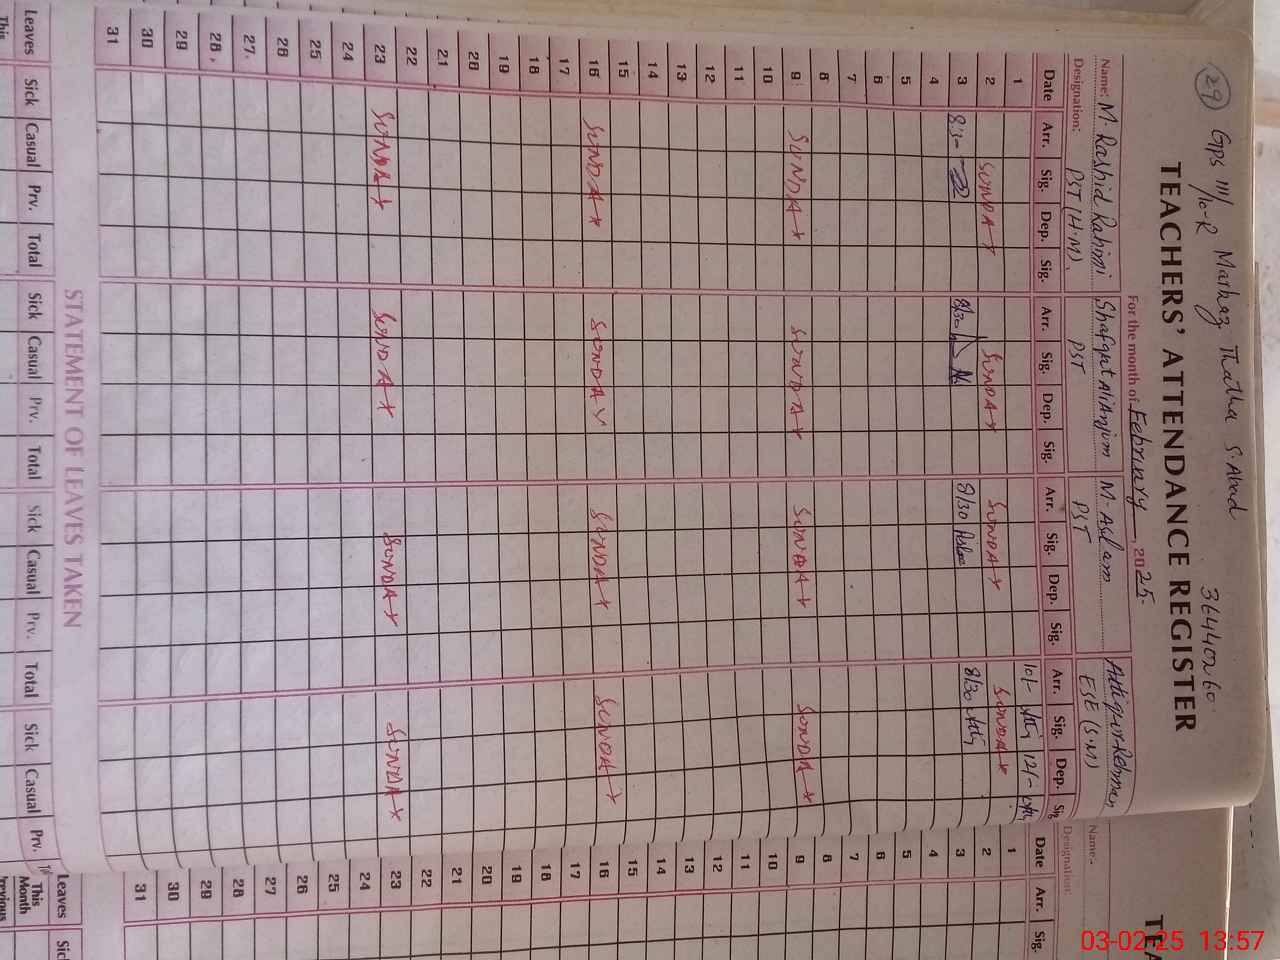 29 Gps 111/10-R Markaz Thatha S. Abad 36440260
TEACHERS' ATTENDANCE REGISTER
For the month of February, 2025.
Name: M. Rashid Rahimi Shafqat Ali Anjum M. Aslam Attiqur-Rehman
Designation: PST (H.M). PST PST ESE (S.M)
Date Arr. Sig. Dep. Sig. Arr. Sig. Dep. Sig. Arr. Sig. Dep. Sig. Arr. Sig. Dep. Sig
1 10/- 12/-
2 SUNDAY SUNDAY SUNDAY SUNDAY
3 8:3- 8/30 8/30 8/30
4
5
6
7
8
9 SUNDAY SUNDAY SUNDAY SUNDAY
10
11
12
13
14
15
16 SUNDAY SUNDAY SUNDAY SUNDAY
17
18
19
20
21
22
23 SUNDAY SUNDAY SUNDAY SUNDAY
24
25
26
27
28
29
30
31
STATEMENT OF LEAVES TAKEN
Leaves Sick Casual Prv. Total Sick Casual Prv. Total Sick Casual Prv. Total Sick Casual Prv.
This
TEA
Name:
Designation:
Date Arr. Sig.
1
2
3
4
5
6
7
8
9
10
11
12
13
14
15
16
17
18
19
20
21
22
23
24
25
26
27
28
29
30
31
Leaves Sick
This
Month
03-02-25 13:57